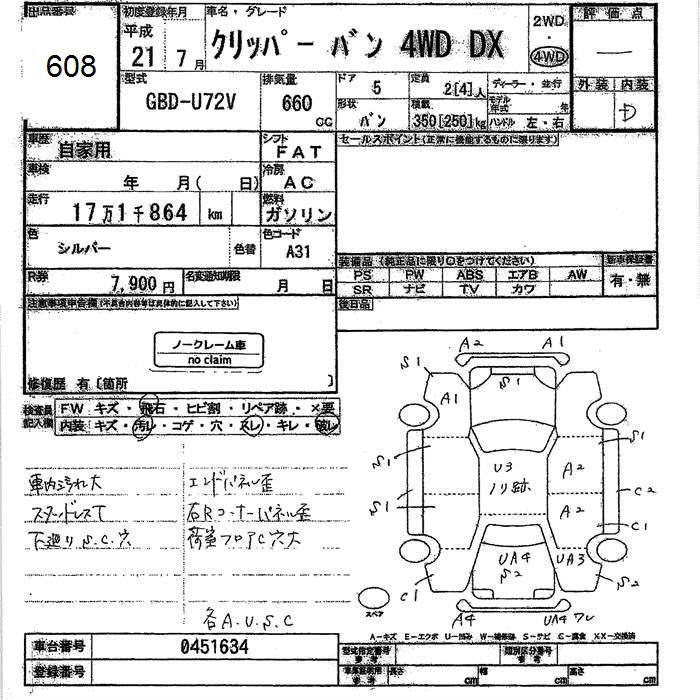 出品番号
608
初度登録年月
平成
21 7 月
車名・グレード
クリッパー バン 4WD DX
2WD
・
4WD
評価点
—
外装 内装
D
型式
GBD-U72V
排気量
660
CC
ドア
5
定員
2[4]人
ディーラー・並行
モデル年式 年
形状
バン
積載
350[250]kg
ハンドル 左・右
車歴
自家用
シフト
FAT
セールスポイント(正常に機能するものに限ります)
車検
年 月( 日)
冷房
AC
走行
17万1千864 km
燃料
ガソリン
色
シルバー
色替
色コード
A31
装備品 (純正品に限り○をつけてください)
新車保証書
PS PW ABS エアB AW
有・無
SR ナビ TV カワ
R券
7,900 円
名変通知期限
月 日
後日品
注意事項申告欄(不具合内容等は具体的に記入して下さい)
ノークレーム車
no claim
修復歴 有〔箇所 〕
検査員
記入欄
FW キズ・飛石・ヒビ割・リペア跡・×要
内装 キズ・汚レ・コゲ・穴・スレ・キレ・破レ
車内汚れ大
エンドパネル歪
スタッドレスT
右Rコーナーパネル歪
下廻りS.C.穴
荷室フロアC穴大
各A.U.S.C
A2 A1
S1 S1
A1
S1 U3 A2 S1
ノリ跡
S1 A2 C2
C1
UA4 UA3
C1 S2 S2
スペア
A4 UA4 ワレ
A-キズ E-エクボ U-凹み W-補修跡 S-サビ C-腐食 XX-交換済
車台番号
0451634
登録番号
型式指定番号
参考
類別区分番号
参考
長さ cm
幅 cm
高さ cm